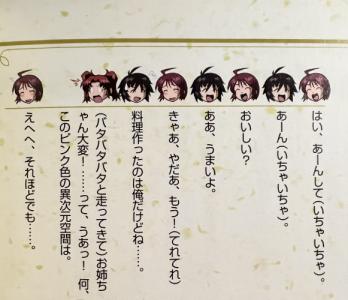 はい、あーんして(いちゃいちゃ)。
あーん(いちゃいちゃ)。
おいしい?
ああ、うまいよ。
きゃあ、やだあ、もう!(てれてれ)
料理作ったのは俺だけどね……。
(パタパタパタと走ってきて)お姉ち
ゃん大変!……って、うあっ! 何、
このピンク色の異次元空間は。
えへへ、それほどでも……。